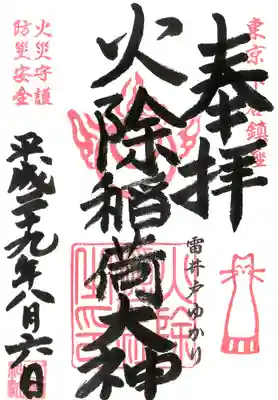 奉拝
雷井戸ゆかり
火除稲荷大神
火災守護
防災安全
平成二十九年八月六日